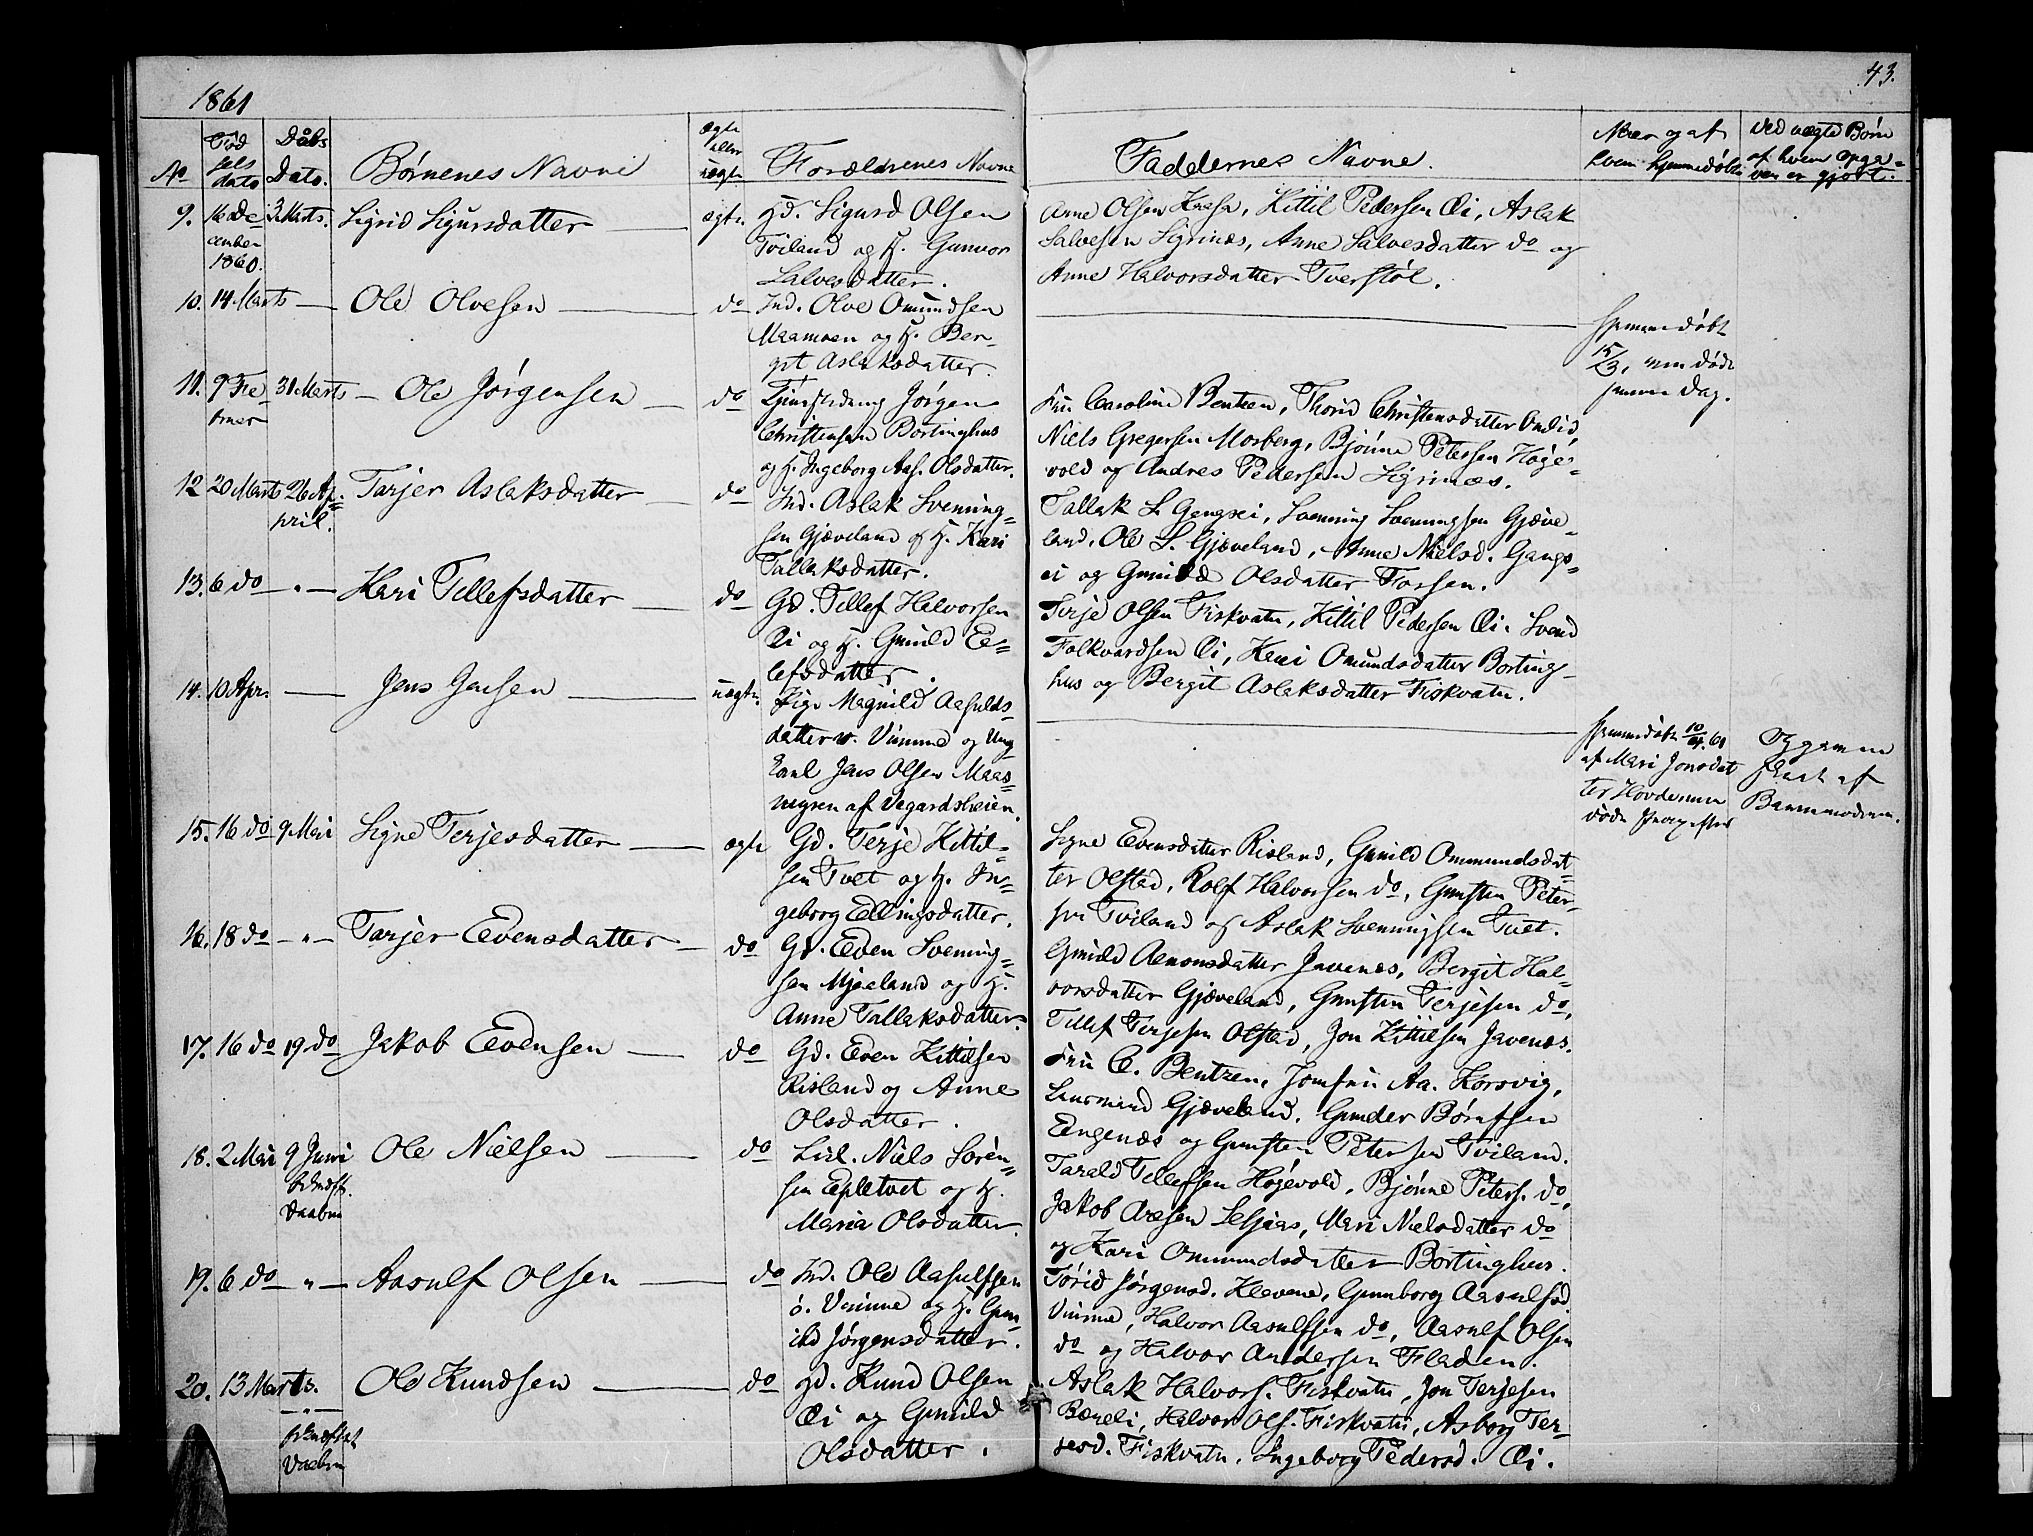 1861
43.
No
Fød
sels
dato
Dåbs
Dato.
Børnenes Navne
Ægte
eller
uægte
Forældrenes Navne
Faddernes Navne.
Naar og af
hvem hjemmedøbt
Ved uægte Børn
af hvem Opga-
ven er gjort.
9. 16 De-
cember
1860.
3 Marts.
Sigrid Sigursdatter
ægte.
Gd. Sigurd Olsen
Tviland og H. Gunvor
Salvesdatter.
Anne Olsen, Kittil Pedersen Ei, Aslak
Salvesen Sigrinæs, Anne Salvesdatter do og
Anne Halvorsdatter Tverstøl.
10. 14 Marts
Ole Olvesen
do
Ind. Olve Omundsen
Maamoen og H. Ber-
git Aslaksdatter.
Hjemmedøbt
15/3, men døde
samme Dag.
11. 9 Fe
bruar
31 Marts
Ole Jørgensen
do
Jørgen
Christensen Bortinghus
og H. Ingeborg Aas. Olsdatter.
Fru Caroline Bentzen, Thorid Christensdatter
Niels Gregersen Mosberg, Bjønne Petersen Høge-
vold og Andres Pedersen Sigrinæs.
12 20 Marts 26 Ap-
pril.
Tarjer Aslaksdatter
do
Ind. Aslak Svenning-
sen Gjæveland og H. Kari
Tallaksdatter.
Tallak S. Gangsei, Svenning Svenningsen Gjæve-
land, Ole S. Gjæveland, Anne Nielsd. Gangs-
ei og Gunild Olsdatter Fossen.
13. 6 do - " -
Kari Tellefsdatter
do
Gd. Tellef Halvorsen
Ei og H. Gunild Ee-
lefsdatter.
Terje Olsen Fiskvatn, Kittil Pedersen Ei, Svend
Folkvardsen Ei, Kari Omundsdatter Borting-
hus og Bergit Aslaksdatter Fiskvatn.
14. 10 Apr.
Jens Jensen
uægte.
Pige Magnild Aasulds-
datter v. Vimme og Ung
karl Jens Olsen Maas-
af Vegardsheien.
Hjemmedøbt 10/4. 61
af Mari Jonsdat
ter Hovdemoen
døde strax efter
Opgiven
sket af
Barnemoderen.
15. 16 do 9 Mai
Signe Terjesdatter
ægte
Gd. Terje Kittil-
sen Tvet og H. In-
geborg Ellingsdatter.
Signe Evensdatter Risland, Gunild Ommundsdat-
ter Olstad, Rolf Halvorsen do, Gunsten Peter-
sen Tviland og Aslak Svenningsen Tvet.
16. 18 do - " -
Tarjer Eevensdatter
do
Gd. Eeven Svenning-
sen Mjaaland og H.
Anne Tallaksdatter.
Gunild Aanonsdatter Javenæs, Bergit Hal-
vorsdatter Gjæveland, Gunsten Terjesen do,
Tellef Terjesen Olstad, Jon Kittilsen Javenæs.
17. 16 do 19 do
Jakob Eevensen
do
Gd. Eeven Kittilsen
Risland og Anne
Olsdatter.
Fru C. Bentzen, Jomfru Aa. Korsvig,
Lensmand Gjæveland, Gunder Børufsen
Eengenæs og Gunsten Petersen Tviland.
18. 2 Mai 9 Juni
bekræft.
Daaben
Ole Nielsen
do
Leil. Niels Søren-
sen Epletvet og H.
Maria Olsdatter.
Tarald Tellefsen Høgevold, Bjønne Peters. do,
Jakob Aresen Seljaas, Mari Nielsdatter do
og Kari Ommundsdatter Bortinghus.
19. 6 do - " -
Aasulf Olsen
do
Ind. Ole Aasulfsen
ø. Vimme og H. Gun-
ild Jørgensdatter.
Torid Jørgensd. Klevene, Gunborg Aasulfsd.
Vimme, Halvor Aasulfsen do, Aasulf Olsen
do og Halvor Andersen Fladen.
20. 13 Marts.
- " -
bekræftet
Daaben
Ole Knudsen
do
Gd. Knud Olsen
Ei og Gunild
Olsdatter.
Aslak Halvors. Fiskvatn, Jon Terjesen
Bæreli, Halvor Ols. Fiskvatn, Asborg Ter-
jesd. Fiskvatn, Ingeborg Pedersd. Ei.